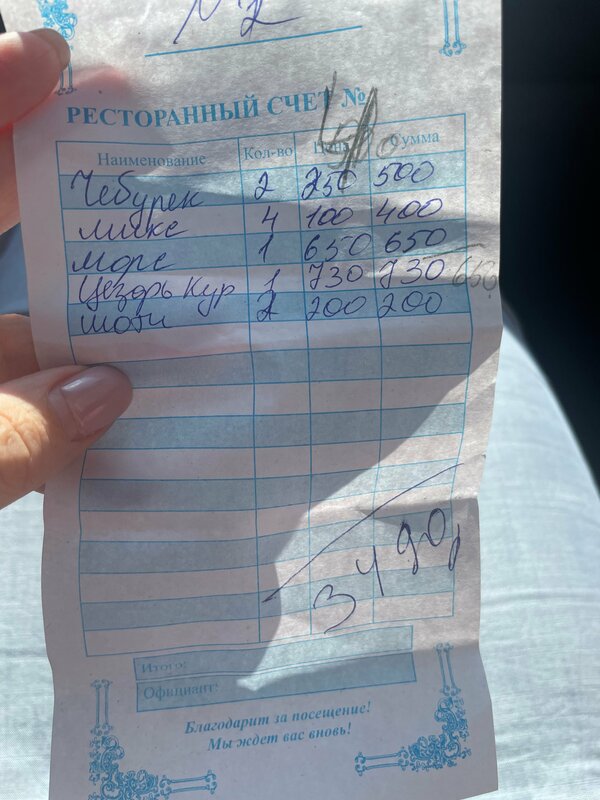 №2
РЕСТОРАННЫЙ СЧЕТ №
Наименование Кол-во Цена Сумма
Чебурек 2 250 500
4 100 400
морс 1 650 650
Цезарь Кур 1 730 730 650
шоти 200 200
3490
Итого:
Официант:
Благодарит за посещение!
Мы ждет вас вновь!